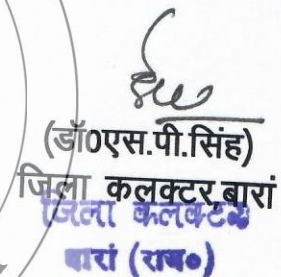 (डॉ0एस.पी.सिंह)
जिला कलक्टर,बारां
जिला कलक्टर
बारां (राज०)